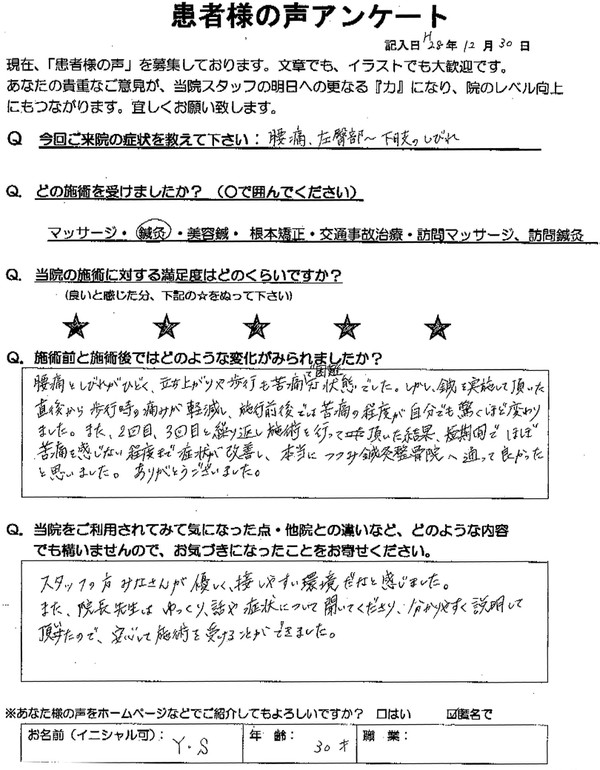 患者様の声アンケート
記入日 H28年 12月 30日
現在、「患者様の声」を募集しております。文章でも、イラストでも大歓迎です。
あなたの貴重なご意見が、当院スタッフの明日への更なる『力』になり、院のレベル向上
にもつながります。宜しくお願い致します。
Q 今回ご来院の症状を教えて下さい：腰痛、左臀部～下肢のしびれ
Q. どの施術を受けましたか？（○で囲んでください）
マッサージ・鍼灸・美容鍼・根本矯正・交通事故治療・訪問マッサージ、訪問鍼灸
Q. 当院の施術に対する満足度はどのくらいですか？
（良いと感じた分、下記の☆をぬって下さい）
★ ★ ★ ★ ★
Q. 施術前と施術後ではどのような変化がみられましたか？
腰痛としびれがひどく、立ち上がりや歩行も苦痛で困難な状態でした。しかし、鍼を実施して頂いた
直後から歩行時の痛みが軽減し、施行前後では苦痛の程度が自分でも驚くほど変わり
ました。また、2回目、3回目と繰り返し施術を行って頂いた結果、短期間でほぼ
苦痛を感じない程度まで症状が改善し、本当につつみ鍼灸整骨院へ通って良かった
と思いました。ありがとうございました。
Q. 当院をご利用されてみて気になった点・他院との違いなど、どのような内容
でも構いませんので、お気づきになったことをお寄せください。
スタッフの方みなさんが優しく、接しやすい環境だなと感じました。
また、院長先生はゆっくり、話や症状について聞いてくださり、分かりやすく説明して
頂けたので、安心して施術を受けることができました。
※あなた様の声をホームページなどでご紹介してもよろしいですか？ □はい ☑匿名で
お名前（イニシャル可）： Y・S 年 齢： 30才 職 業：